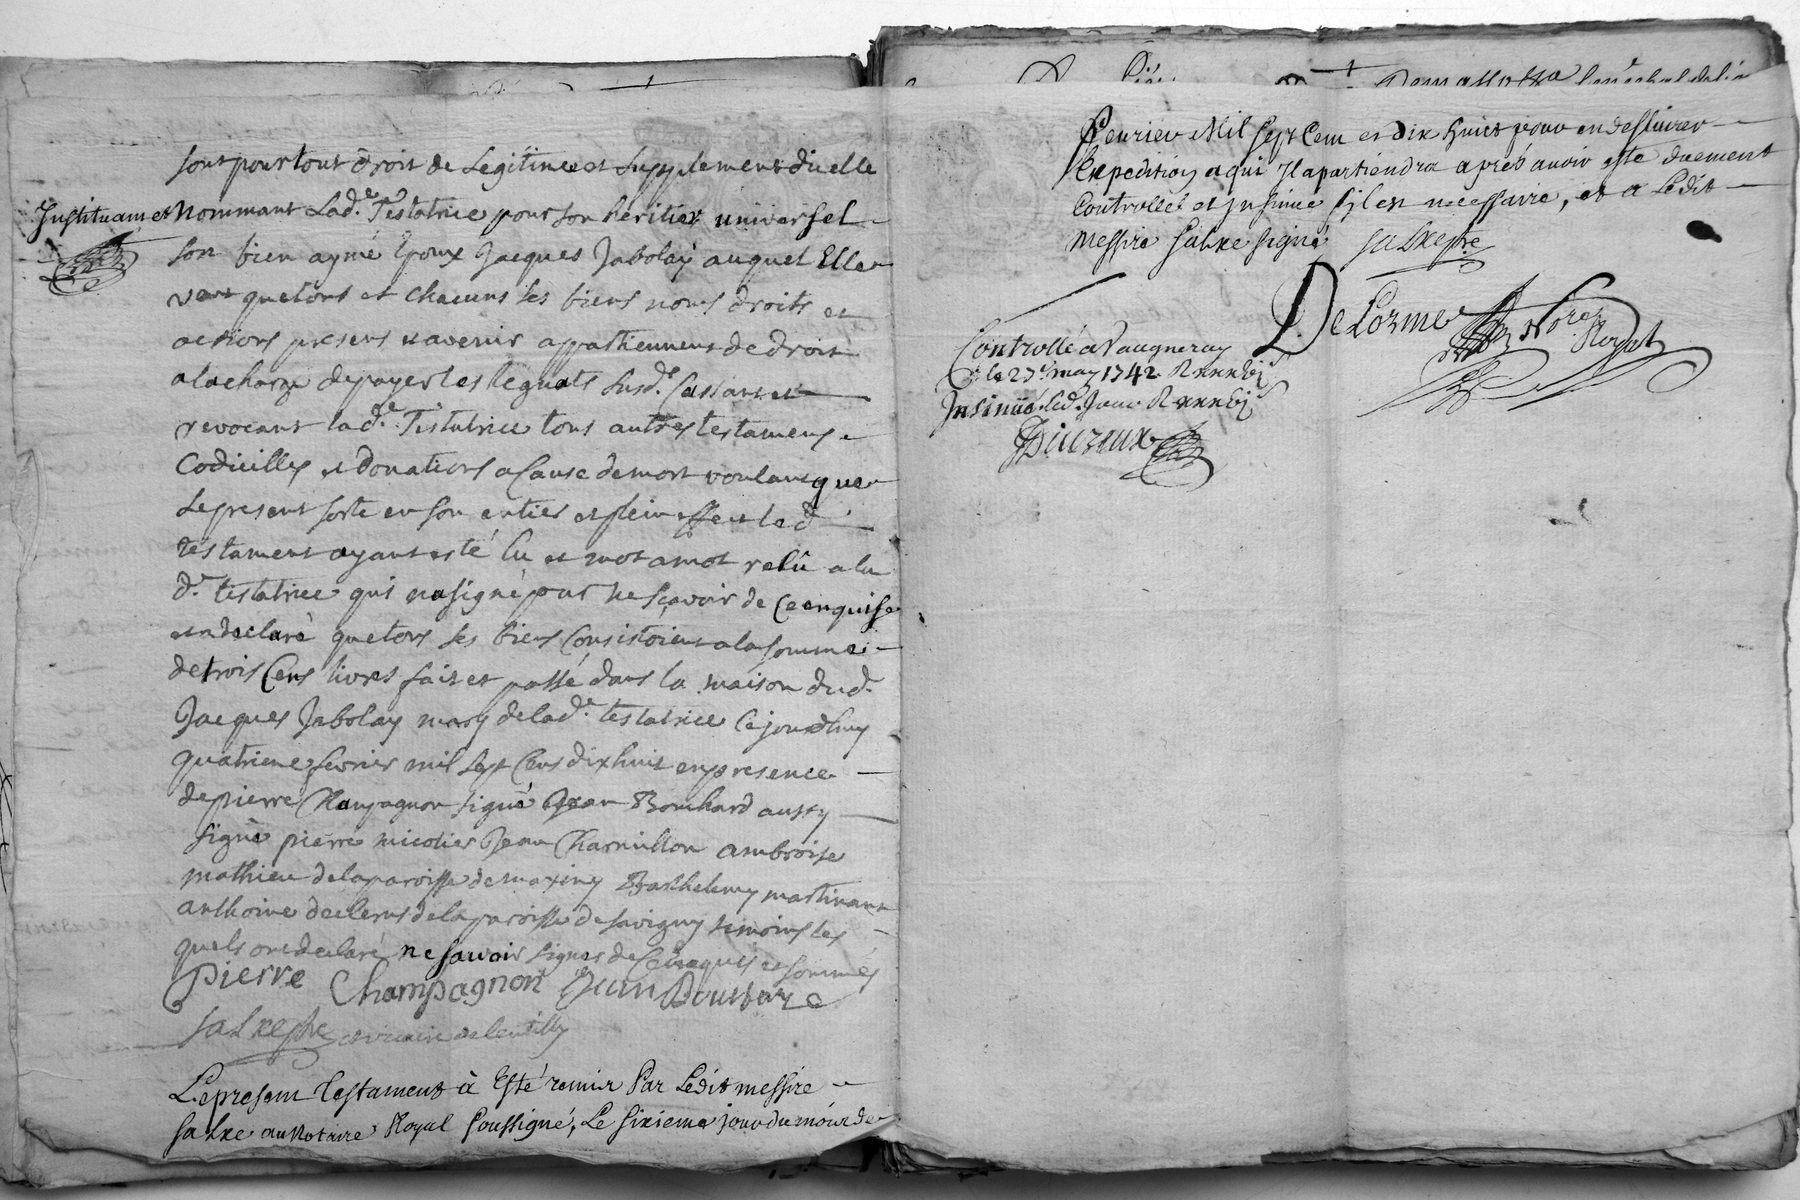 sont pour tout droit de Legitime et supplement dicelle
Instituant et Nommant Lad.e Testatrice pour son heritier universel
son bien aymé Epoux Jacques Jabolay auquel Elle
veut que tous et chacuns ses biens noms droits et
actions presens et avenir appartiennent de droit
a la charge de payer les legats susd.s Cassant et
revocant lad.e Testatrice tous autres testamens
Codicilles et donations a Cause de mort voulant que
Le present sorte en son entier et plein effect led
testament ayant esté lu et mot a mot relû a la
d.e testatrice qui na signé pour ne sçavoir de Ce enquise
et a declaré que tous ses biens Consistoient a la somme
de trois Cens livres fait et passé dans la maison dud.
Jacques Jabolay mary de lad.e testatrice Ce jourdhuy
quatrieme fevrier mil sept Cens dix huit en presence
de pierre Champagnon signé Jean Bouchard aussy
signé pierre micolier Jean Charmillon ambroise
mathieu de la paroisse de Marciny Barthelemy martinant
anthoine declerus de la paroisse de savigny temoins les
quels ont declaré ne savoir signer de Ce enquis et sommés
pierre Champagnon Jean
salxe pbre et vicaire de lentilly
Le present testament à Esté remis Par Ledit messire
salxe au Notaire Royal soussigné, Le sixieme jour du mois de
fevrier Mil sept Cent et dix huict pour en deslivrer
Expedition a qui Il apartiendra aprés avoir esté duement
Controllée et Insinué s'il est necessaire, et a Ledit
Messire salxe signé salxe pbre
Delorme Nore Royal
Controllé a Vaugneray
le 27e may 1742 R xxxvi s
Insinué led. Jour R xxxvi s